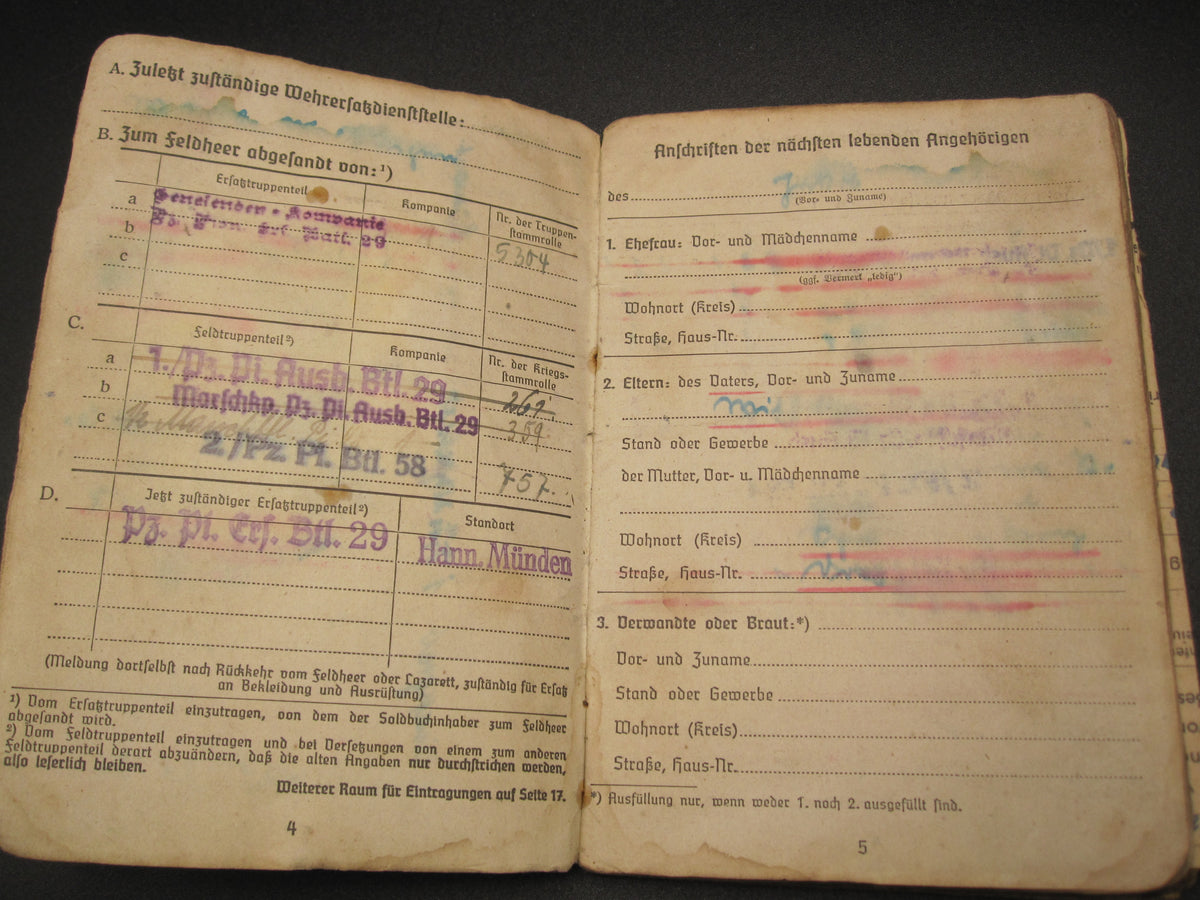 A. Zuletzt zuständige Wehrersatzdienststelle:
B. Zum Feldheer abgesandt von:¹)
Ersatztruppenteil Kompanie Nr. der Truppen-
stammrolle
a Genesenden-Kompanie
b Pz. Pion. Ers. Batl. 29 5304
c
C.
Feldtruppenteil²) Kompanie Nr. der Kriegs-
stammrolle
a 1./Pz. Pi. Ausb. Btl. 29 261
b Marschkp. Pz. Pi. Ausb. Btl. 29 359
c
2./Pz. Pi. Btl. 58 757.
D.
Jetzt zuständiger Ersatztruppenteil²) Standort
Pz. Pi. Ers. Btl. 29 Hann. Münden
(Meldung dortselbst nach Rückkehr vom Feldheer oder Lazarett, zuständig für Ersatz
an Bekleidung und Ausrüstung)
¹) Vom Ersatztruppenteil einzutragen, von dem der Soldbuchinhaber zum Feldheer
abgesandt wird.
²) Vom Feldtruppenteil einzutragen und bei Versetzungen von einem zum anderen
Feldtruppenteil derart abzuändern, daß die alten Angaben nur durchstrichen werden,
also leserlich bleiben.
Weiterer Raum für Eintragungen auf Seite 17.
4
Anschriften der nächsten lebenden Angehörigen
des
(Vor- und Zuname)
1. Ehefrau: Vor- und Mädchenname
(ggf. Vermerk „ledig")
Wohnort (Kreis)
Straße, Haus-Nr.
2. Eltern: des Vaters, Vor- und Zuname
Stand oder Gewerbe
der Mutter, Vor- u. Mädchenname
Wohnort (Kreis)
Straße, Haus-Nr.
3. Verwandte oder Braut:*)
Vor- und Zuname
Stand oder Gewerbe
Wohnort (Kreis)
Straße, Haus-Nr.
*) Ausfüllung nur, wenn weder 1. noch 2. ausgefüllt sind.
5